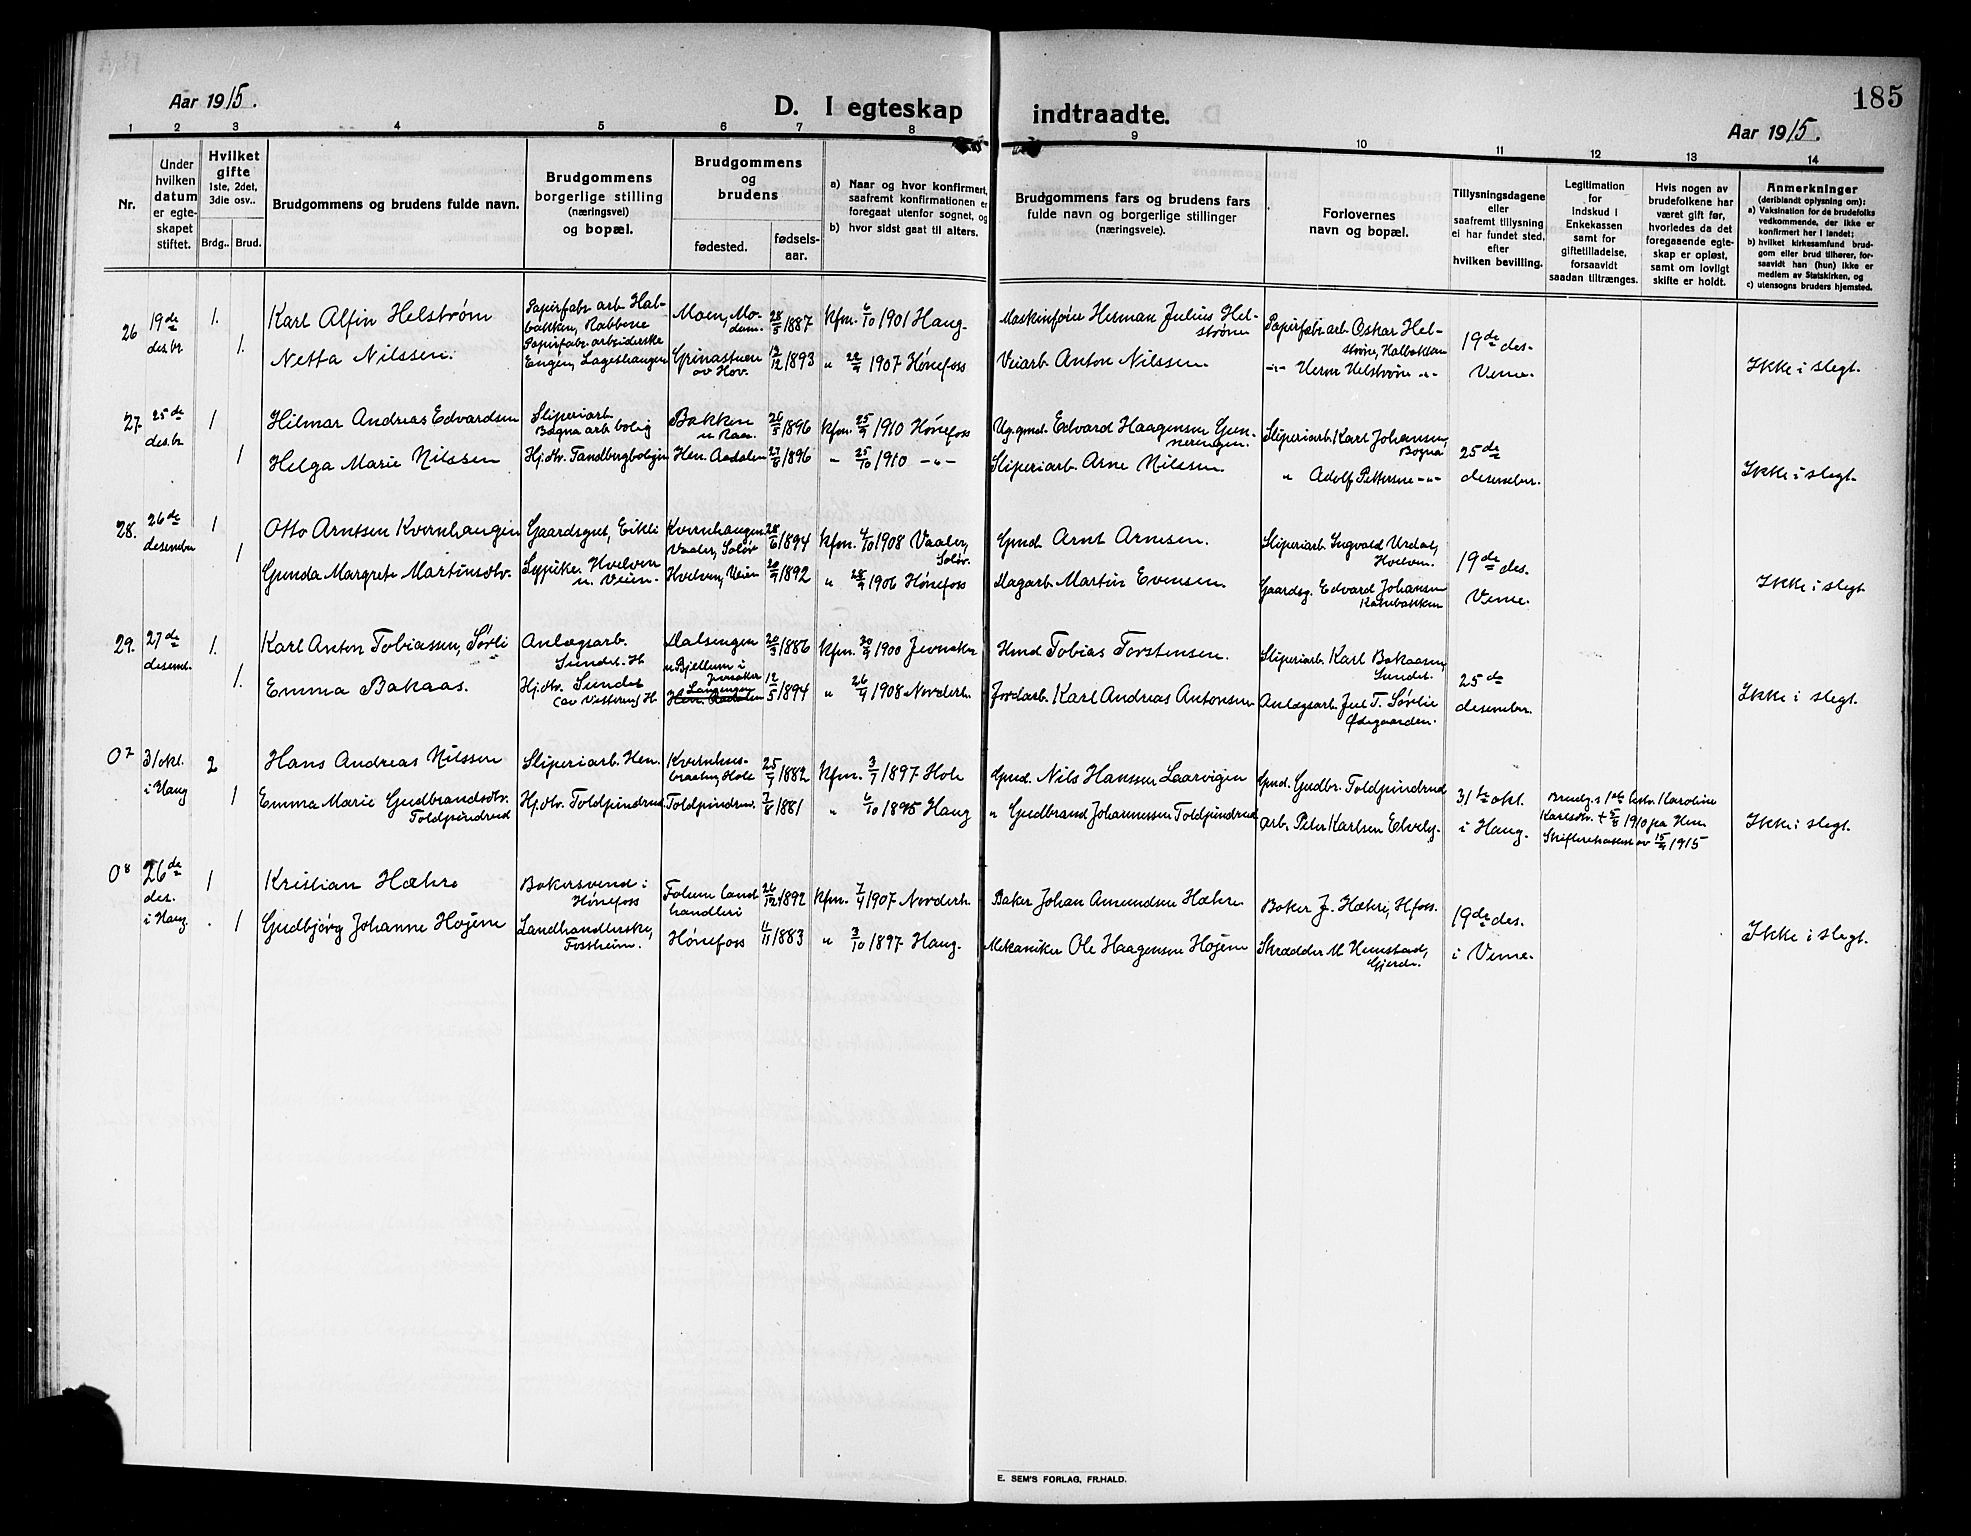 185
Aar 1915.
D. I egteskap indtraadte.
Aar 1915.
1 2 3 4 5 6 7 8 9 10 11 12 13 14
Nr.
Under hvilken datum er egteskapet stiftet.
Hvilket gifte
1ste, 2det, 3die osv..
Brdg.. Brud.
Brudgommens og brudens fulde navn.
Brudgommens borgerlige stilling (næringsvei) og bopæl.
Brudgommens og brudens
fødested.
fødselsaar.
a) Naar og hvor konfirmert, saafremt konfirmationen er foregaat utenfor sognet, og
b) hvor sidst gaat til alters.
Brudgommens fars og brudens fars fulde navn og borgerlige stillinger (næringsveie).
Forlovernes navn og bopæl.
Tillysningsdagene eller saafremt tillysning ei har fundet sted, efter hvilken bevilling.
Legitimation for Indskud i Enkekassen samt for giftetilladelse, forsaavidt saadan tiltrænges.
Hvis nogen av brudefolkene har været gift før, hvorledes da det foregaaende egteskap er opløst, samt om lovligt skifte er holdt.
Anmerkninger (deriblandt oplysning om):
a) Vaksination for de brudefolks vedkommende, der ikke er konfirmert her i landet;
b) hvilket kirkesamfund brudgom eller brud tilhører, forsaavidt han (hun) ikke er medlem av Statskirken, og
c) utensogns bruders hjemsted.
26 19de des.br 1. Karl Alfin Helstrøm Papirfabr. arb. Halbakken, Rabberne Moen, Modum. 28/5 1887 kfm. 6/10 1901 Haug. Maskinfører Herman Julius Helstrøm Papirfabr.arb. Oskar Helstrøm, Halbakken 19de des.
1. Netta Nilssen. Papirfabr. arbeiderske Engen, Lageshaugen Grinastuen av Hov. 13/12 1893 " 22/9 1907 Hønefoss Veiarb. Anton Nilssen. -"- Herm Helstrøm -"- Veme. Ikke i slegt.
27 25de des.br 1 Hilmar Andreas Edvardsen Sliperiarb. Bægna arb.bolig Bakken u. Raa. 26/5 1896 kfm. 25/9 1910 Hønefoss Ug.gmd. Edvard Haagensen Gunnerengen. Sliperiarb. Karl Johansen, Bægna 25de
1 Helga Marie Nilssen Hj.dtr. Tandbergboligen Hen. Aadalen 27/8 1896 " 25/10 1910 -"- Sliperiarb. Arne Nilssen. " Adolf Pettersen -"- desember. Ikke i slegt.
28. 26de desember 1 Otto Arntsen Kvernhaugen Gaardsgut, Eikli Kvernhaugen Vaaler, Solør 28/6 1894 kfm. 4/10 1908 Vaaler, Solør. Gmd. Arnt Arnesen. Sliperiarb. Ingvald Urdal, Hvelven. 19de des.
1 Gunda Margrete Martinsdtr. Sypike. Hvelven u. Veien. Hvelven, Veien 20/9 1892 " 28/9 1906 Hønefoss Dagarb. Martin Evensen Gaardsg. Edvard Johansen Veme. Ikke i slegt.
29. 27de desemb. 1. Karl Anton Tobiassen, Sørli Anlægsarb. Sundet. H. Dalsengen u. Bjellum i Jevnaker 20/3 1886 kfm. 30/9 1900 Jevnaker Hmd Tobias Torstensen. Sliperiarb. Karl Bakaasen, Sundet. 25de
1. Emma Bakaas. Hj.dtr. Sundet Hen. Aadalen 12/5 1894 " 26/4 1908 Norderh. Jordarb. Karl Andreas Antonsen Anlægsarb. Jul T. Sørlie Ødegaarden. desember. Ikke i slegt.
07 31 okt. i Haug 2 Hans Andreas Nilssen Sliperiarb. Hen. Hole 25/4 1882 kfm. 3/7 1897 Hole Gmd. Nils Hanssen Laarvigen Gmd. Gudbr. Toldpindrud 31te okt.
1 Emma Marie Gudbrandsdtr. Toldpindrud Hj.dtr. Toldpindrud Toldpindrud. 7/8 1881 " 6/10 1895 Haug " Gudbrand Johannessen Toldpindrud arb. Peter Karlsen Elvely. i Haug. Brudg.s 1ste hstr. Karoline Karlsdtr. + 5/8 1910 fra Hen Skifterettsattest av 15/4 1915 Ikke i slegt.
08 26de des. i Haug. 1 Kristian Hæhre Bakersvend i Hønefoss Folum landhandleri 26/12 1892 kfm. 7/4 1907 Norderh. Baker Johan Amundsen Hæhre Baker J. Hæhre, Hfoss. 19de des.
1 Gudbjørg Johanne Højene Landhandlerske, Fossheim. Hønefoss 4/11 1883 " 3/10 1897 Haug. Mekaniker Ole Haagensen Højene Skrædder M. Hemstad, Gjerde. i Veme. Ikke i slegt.
E. SEM'S FORLAG, FR.HALD.